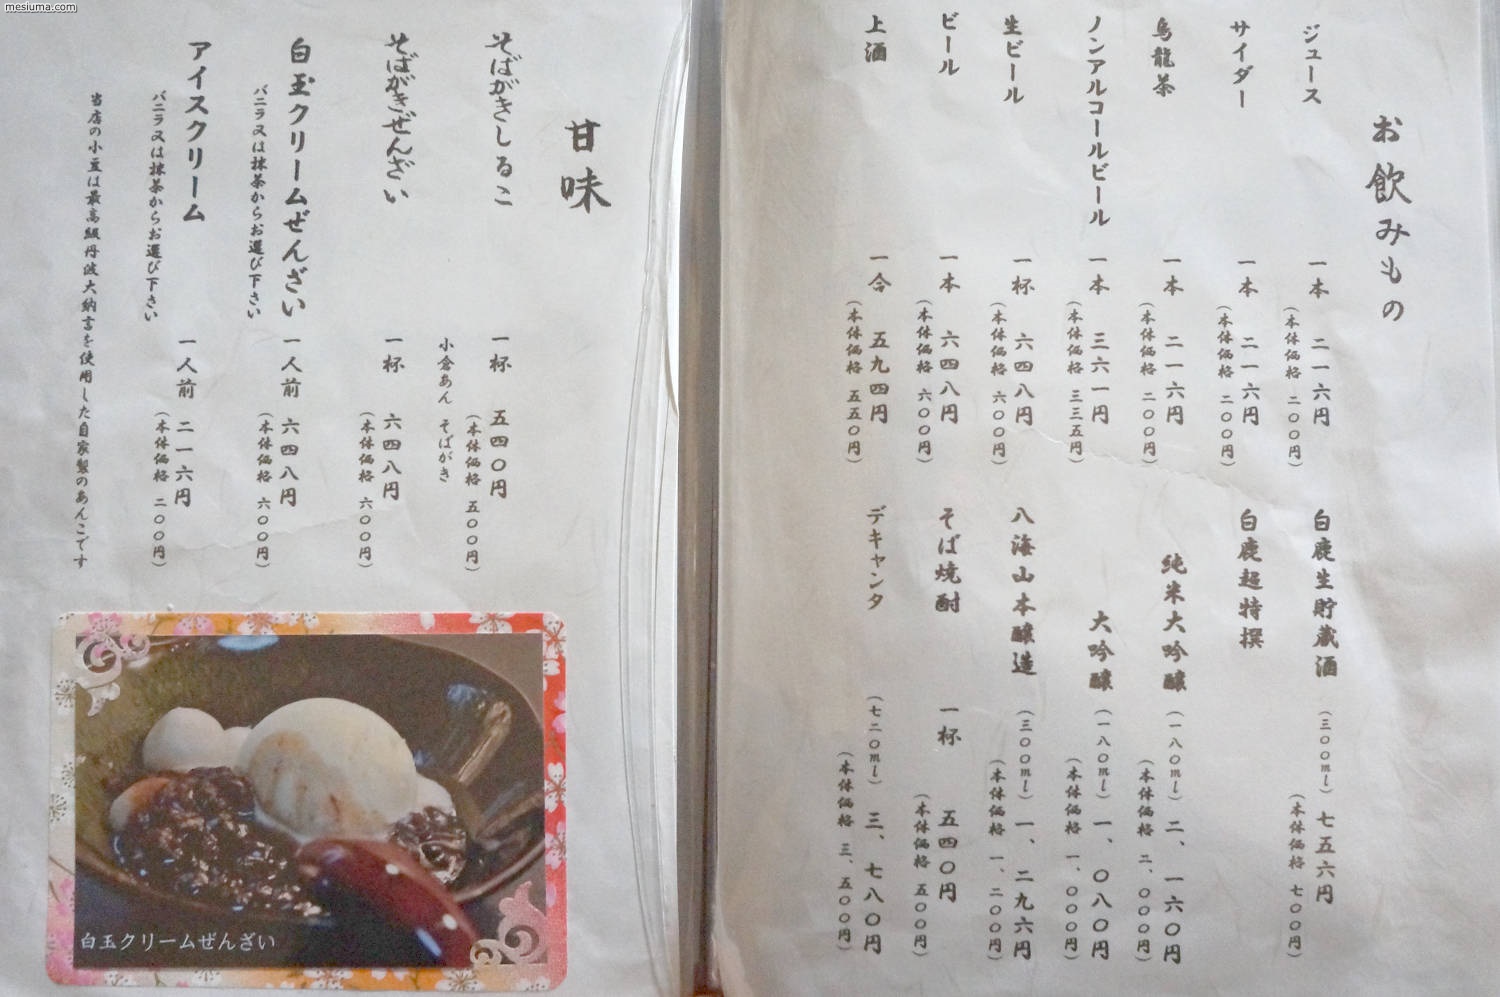 mesiuma.com
お飲みもの
ジュース 一本 二一六円
(本体価格 二〇〇円)
サイダー 一本 二一六円
(本体価格 二〇〇円)
烏龍茶 一本 二一六円
(本体価格 二〇〇円)
ノンアルコールビール 一本 三六一円
(本体価格 三三五円)
生ビール 一杯 六四八円
(本体価格 六〇〇円)
ビール 一本 六四八円
(本体価格 六〇〇円)
上酒 一合 五九四円
(本体価格 五五〇円)
白鹿生貯蔵酒 (三〇〇ml) 七五六円
(本体価格 七〇〇円)
白鹿超特撰
純米大吟醸 (一八〇ml) 二、一六〇円
(本体価格 二、〇〇〇円)
大吟醸 (一八〇ml) 一、〇八〇円
(本体価格 一、〇〇〇円)
八海山本醸造 (三〇〇ml) 一、二九六円
(本体価格 一、二〇〇円)
そば焼酎 一杯 五四〇円
(本体価格 五〇〇円)
デキャンタ (七二〇ml) 三、七八〇円
(本体価格 三、五〇〇円)
甘味
そばがきしるこ 一杯 五四〇円
(本体価格 五〇〇円)
小倉あん そばがき
そばがきぜんざい 一杯 六四八円
(本体価格 六〇〇円)
白玉クリームぜんざい 一人前 六四八円
バニラ又は抹茶からお選び下さい (本体価格 六〇〇円)
アイスクリーム 一人前 二一六円
バニラ又は抹茶からお選び下さい (本体価格 二〇〇円)
当店の小豆は最高級丹波大納言を使用した自家製のあんこです
白玉クリームぜんざい